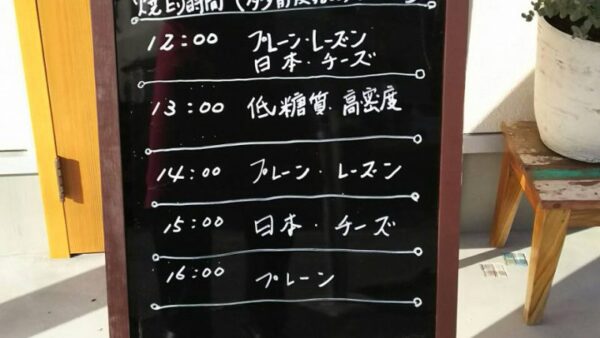 焼上り時間(多少前後
12:00 プレーン・レーズン
日本・チーズ
13:00 低糖質・高密度
14:00 プレーン・レーズン
15:00 日本・チーズ
16:00 プレーン